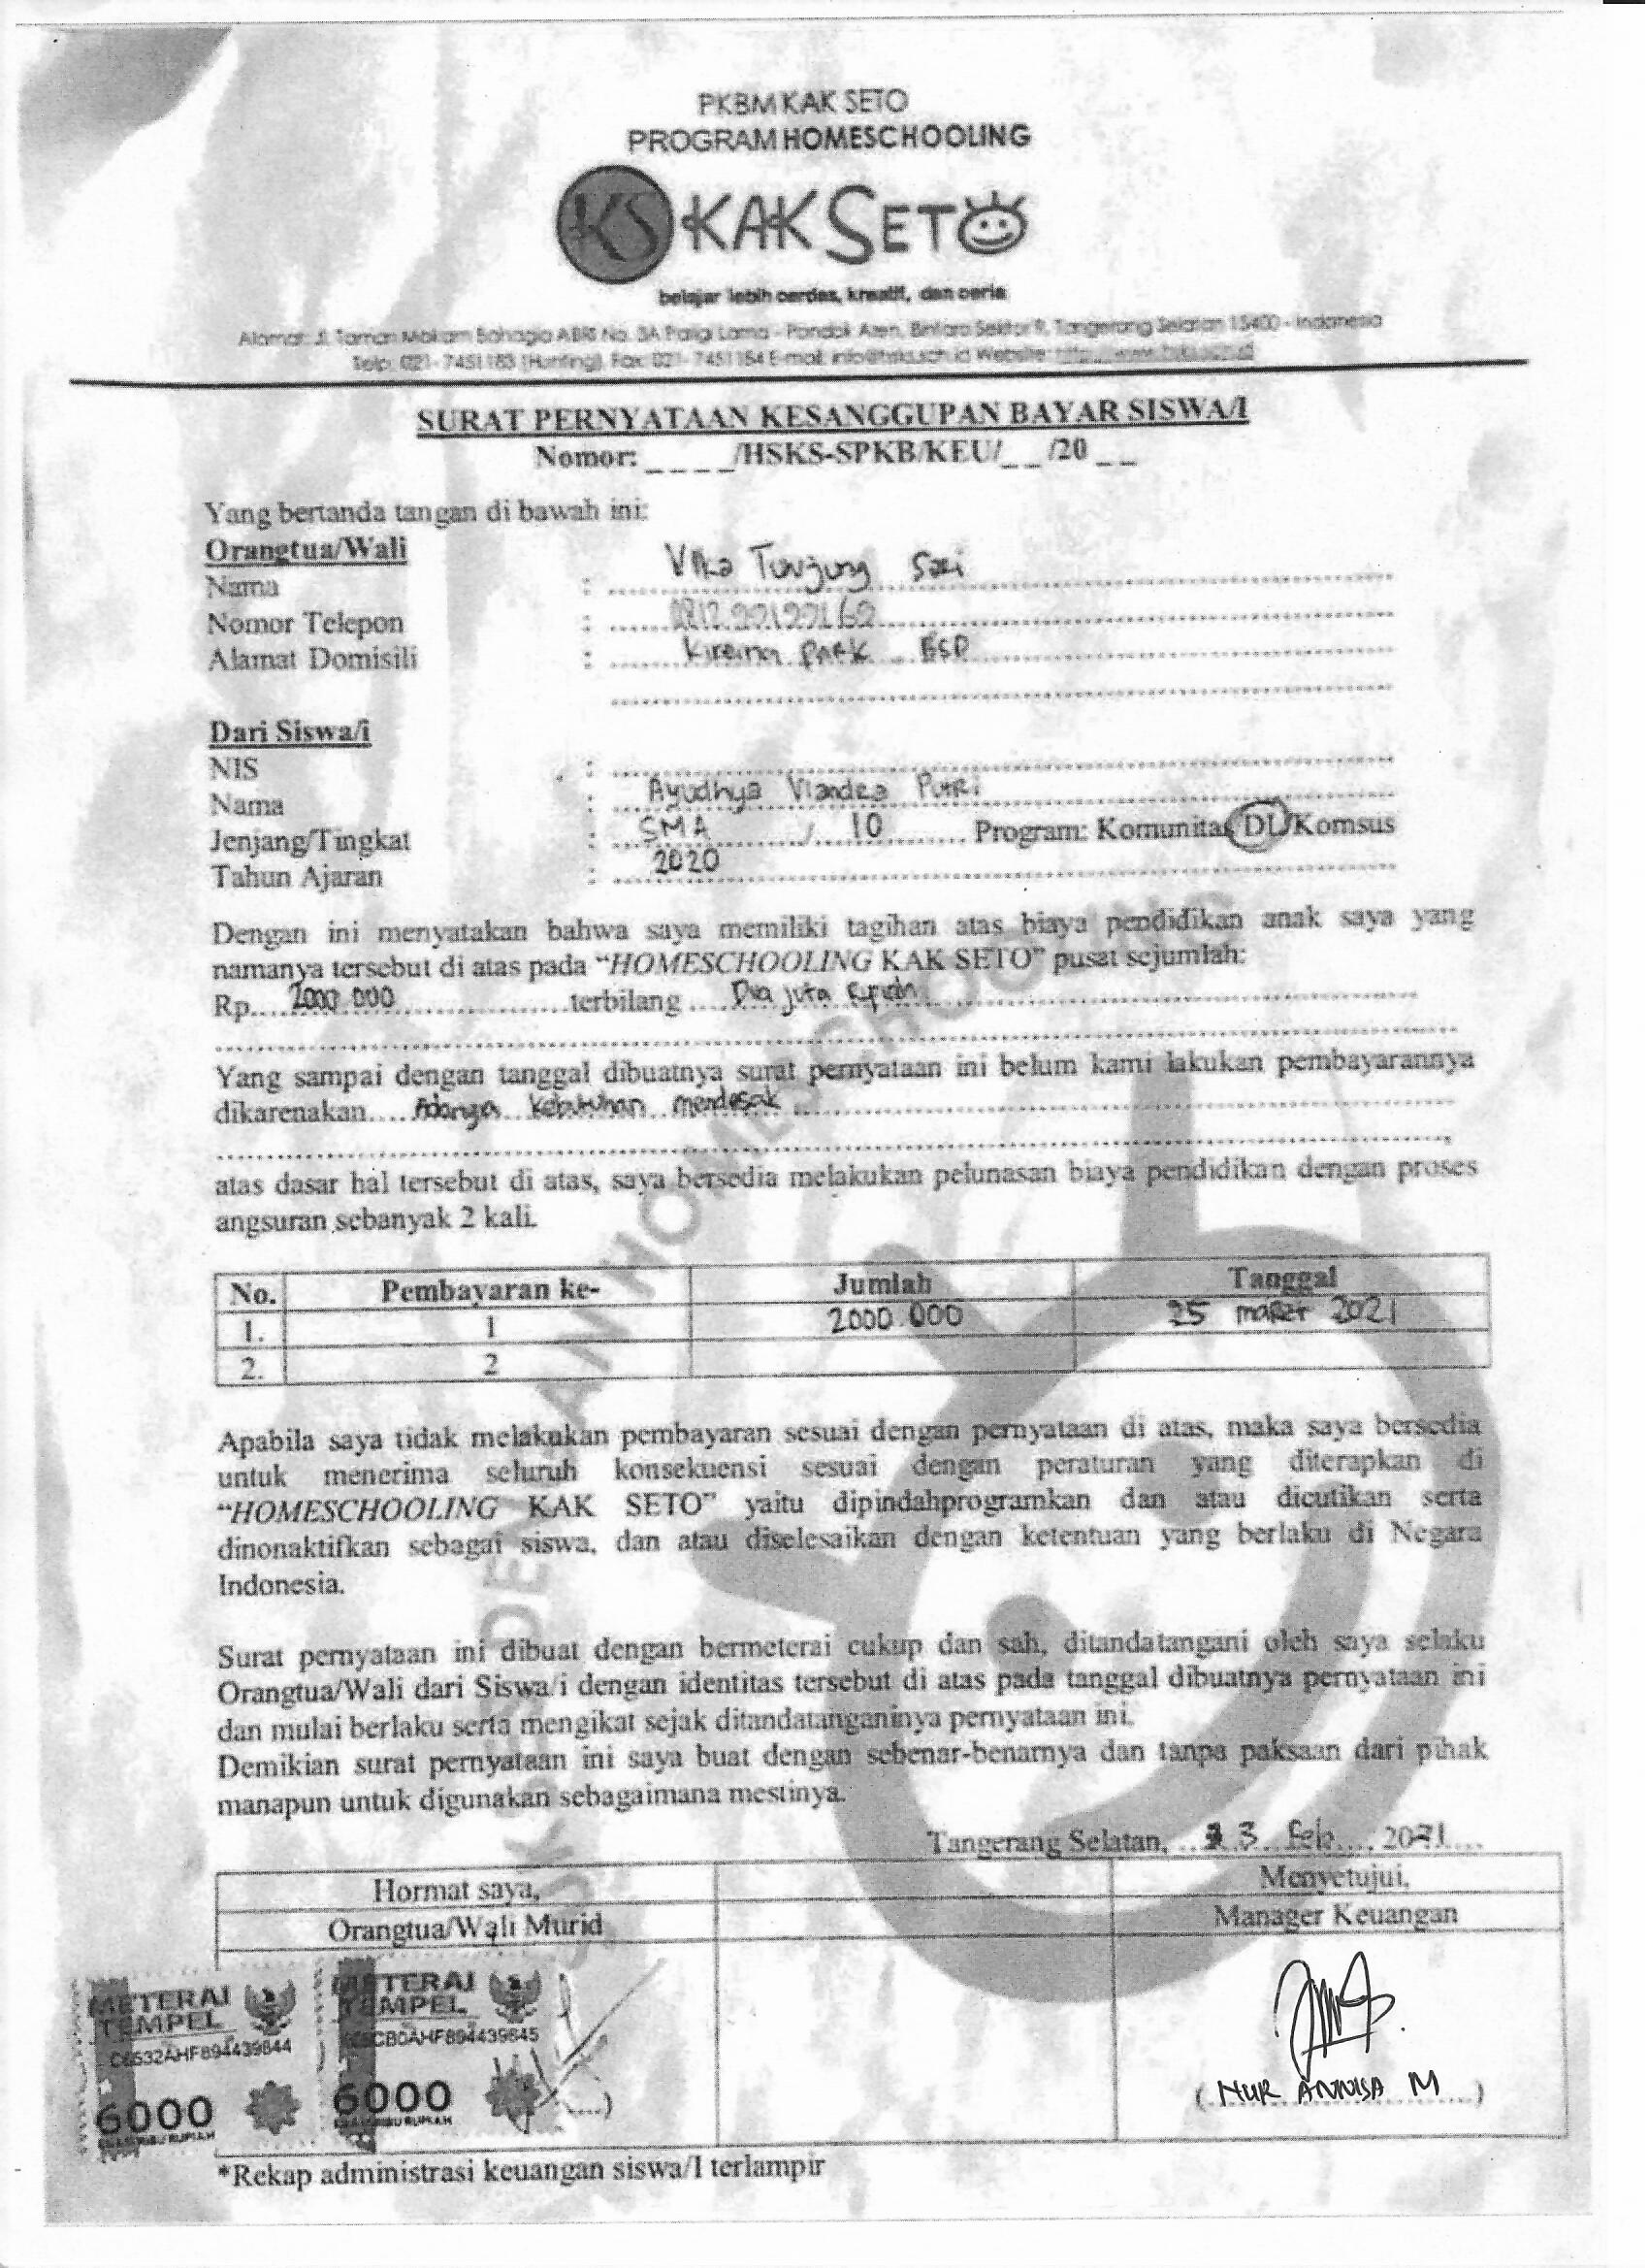 PKBM KAK SETO
PROGRAM HOMESCHOOLING
KS KAK SETO
belajar lebih cerdas, kreatif, dan ceria
Alamat: Jl. Taman Makam Bahagia ABRI No. 3A Parigi Lama - Pondok Aren, Bintaro Sektor 9, Tangerang Selatan 15400 - Indonesia
Telp: 021- 7451183 (Hunting), Fax: 021- 7451184 E-mail:
SURAT PERNYATAAN KESANGGUPAN BAYAR SISWA/I
Nomor: _ _ _ _/HSKS-SPKB/KEU/_ _ /20 _ _
Yang bertanda tangan di bawah ini:
Orangtua/Wali
Nama : Vika Tunjung Sari
Nomor Telepon :
Alamat Domisili : Kireina Park BSD
Dari Siswa/i
NIS :
Nama : Ayudhya Viandra Putri
Jenjang/Tingkat : SMA / 10 Program: Komunitas/DL/Komsus
Tahun Ajaran : 2020
Dengan ini menyatakan bahwa saya memiliki tagihan atas biaya pendidikan anak saya yang
namanya tersebut di atas pada “HOMESCHOOLING KAK SETO” pusat sejumlah:
Rp.... 2000 000 ....terbilang .... Dua juta Rupiah
Yang sampai dengan tanggal dibuatnya surat pernyataan ini belum kami lakukan pembayarannya
dikarenakan.... Adanya kebutuhan mendesak
atas dasar hal tersebut di atas, saya bersedia melakukan pelunasan biaya pendidikan dengan proses
angsuran sebanyak 2 kali.
No. Pembayaran ke- Jumlah Tanggal
1. 1 2000 000 25 maret 2021
2. 2
Apabila saya tidak melakukan pembayaran sesuai dengan pernyataan di atas, maka saya bersedia
untuk menerima seluruh konsekuensi sesuai dengan peraturan yang diterapkan di
“HOMESCHOOLING KAK SETO” yaitu dipindahprogramkan dan atau dicutikan serta
dinonaktifkan sebagai siswa, dan atau diselesaikan dengan ketentuan yang berlaku di Negara
Indonesia.
Surat pernyataan ini dibuat dengan bermeterai cukup dan sah, ditandatangani oleh saya selaku
Orangtua/Wali dari Siswa/i dengan identitas tersebut di atas pada tanggal dibuatnya pernyataan ini
dan mulai berlaku serta mengikat sejak ditandatanganinya pernyataan ini.
Demikian surat pernyataan ini saya buat dengan sebenar-benarnya dan tanpa paksaan dari pihak
manapun untuk digunakan sebagaimana mestinya.
Tangerang Selatan, 23 Feb 2021
Hormat saya, Menyetujui,
Orangtua/Wali Murid Manager Keuangan
METERAI TEMPEL METERAI TEMPEL
C6532AHF894439644 CB0AHF894439645
6000 6000
ENAM RIBU RUPIAH ENAM RIBU RUPIAH
(NUR ANNISA M)
*Rekap administrasi keuangan siswa/I terlampir